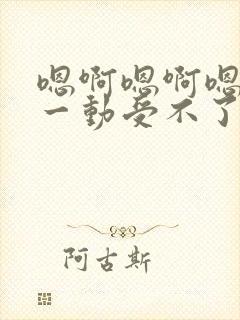 嗯啊嗯啊嗯
一动受不了
阿古斯